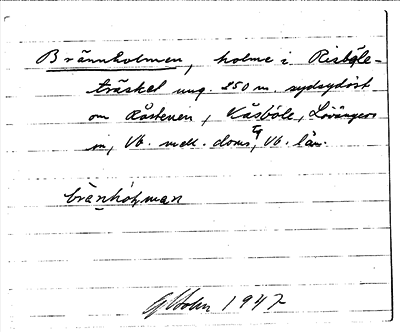 Brännholmen, holme i Risböle-
träsket ung. 250 m sydsydöst
om Råstenen, Kåsböle, Lövångers
sn, Vb. mell. doms Tg, Vb. län.
brä̀nhòɫman
G Holm 1947